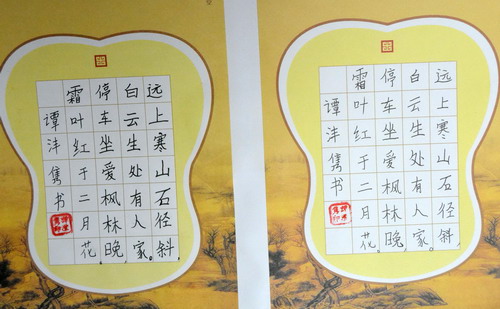 远上寒山石径斜，
白云生处有人家。
停车坐爱枫林晚，
霜叶红于二月花。
谭沣隽书
远上寒山石径斜，
白云生处有人家。
停车坐爱枫林晚，
霜叶红于二月花。
谭沣隽书